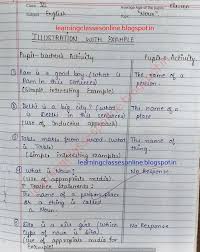 Class VI
Average Age of the pupils Eleven
Subject English
"Noun"
learningclassesonline.blogspot.in
ILLUSTRATION WITH EXAMPLE
Pupil-teachers Activity
Pupil's Activity
① Ram is a good boy (What is
Ram in this sentence)
(Simple Interesting examples)
The name of a
person
② Delhi is a big city? (what
is Delhi in this sentence)
(Use of inductive approach)
The name of a
place
③ Table made from wood (what is
Table)
(Simple interesting examples)
The name of
thing.
learningclassesonline.blogspot.in
④ What is Noun?
(Use of appropriate media)
No Response
Teacher Statement:
The name of a person, place
or a thing is called
a Noun
⑤ Sita is a nice girl (which
type of noun is Sita)
(Use of appropriate media for
example)
No Response